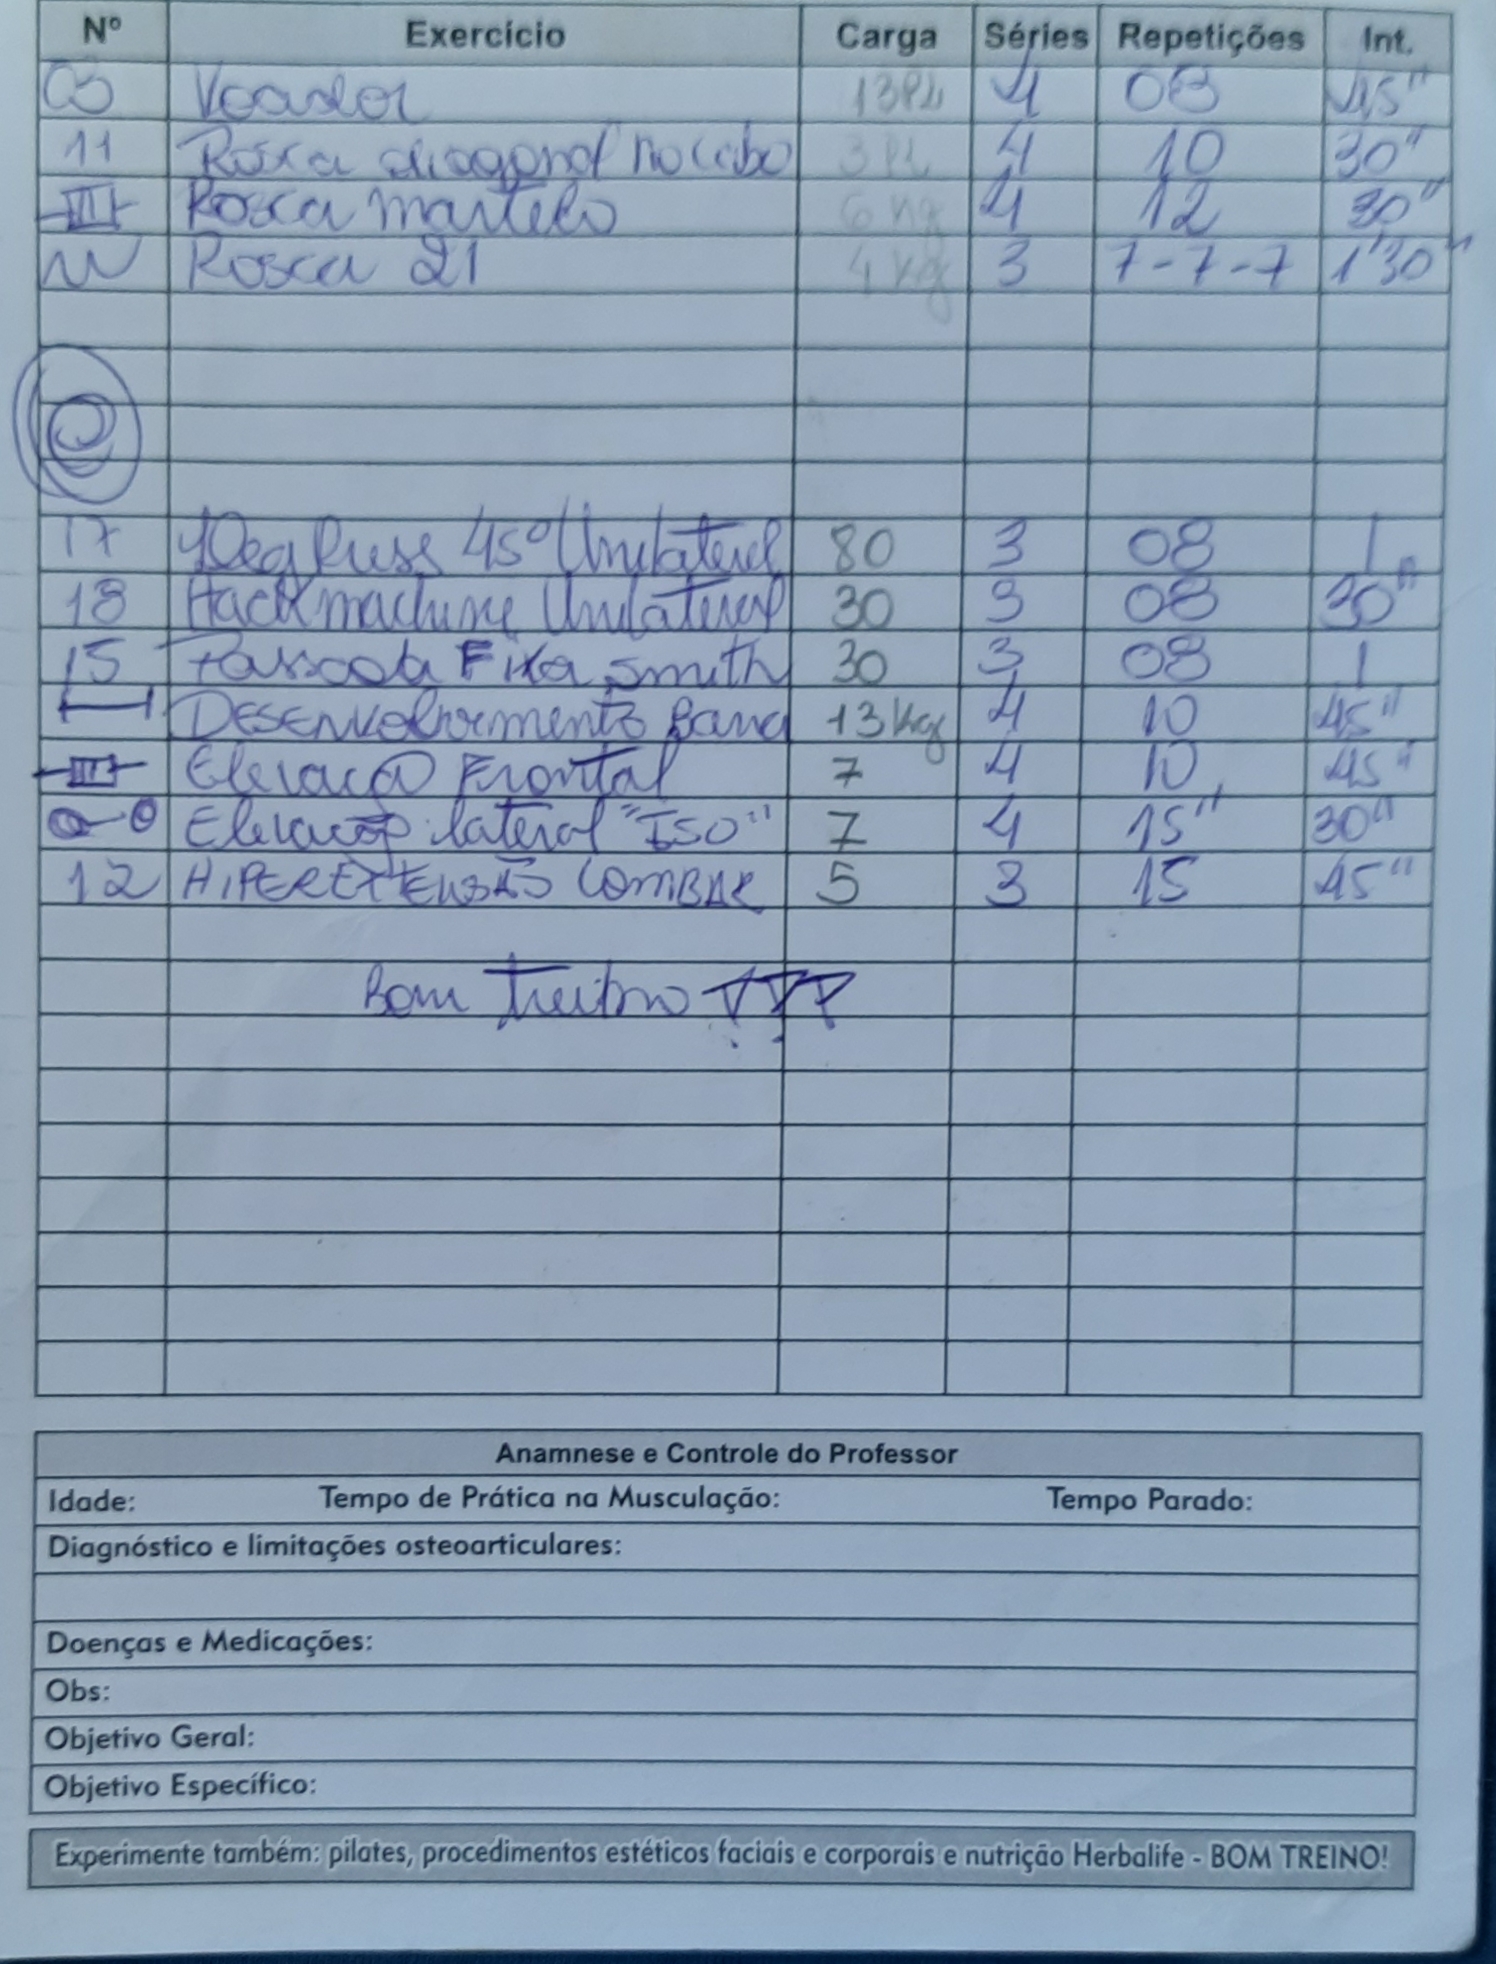 Nº Exercício Carga Séries Repetições Int.
Voador 13PL 4 08 45"
11 Rosca diagonal no cabo 3PL 4 10 30"
Rosca martelo 6 kg 4 12 30"
W Rosca 21 4 kg 3 7-7-7 1'30"
C
17 Leg Press 45º Unilateral 80 3 08 1
18 Hack machine Unilateral 30 3 08 30"
15 Passada Fixa Smith 30 3 08 1
Desenvolvimento Barra 13 kg 4 10 45"
Elevaçã Frontal 7 4 10 45"
Elevação lateral "ISO" 7 4 15" 30"
12 HIPEREXTENSÃO LOMBAR 5 3 15 45"
Bom treino !!!
Anamnese e Controle do Professor
Idade: Tempo de Prática na Musculação: Tempo Parado:
Diagnóstico e limitações osteoarticulares:
Doenças e Medicações:
Obs:
Objetivo Geral:
Objetivo Específico:
Experimente também: pilates, procedimentos estéticos faciais e corporais e nutrição Herbalife - BOM TREINO!